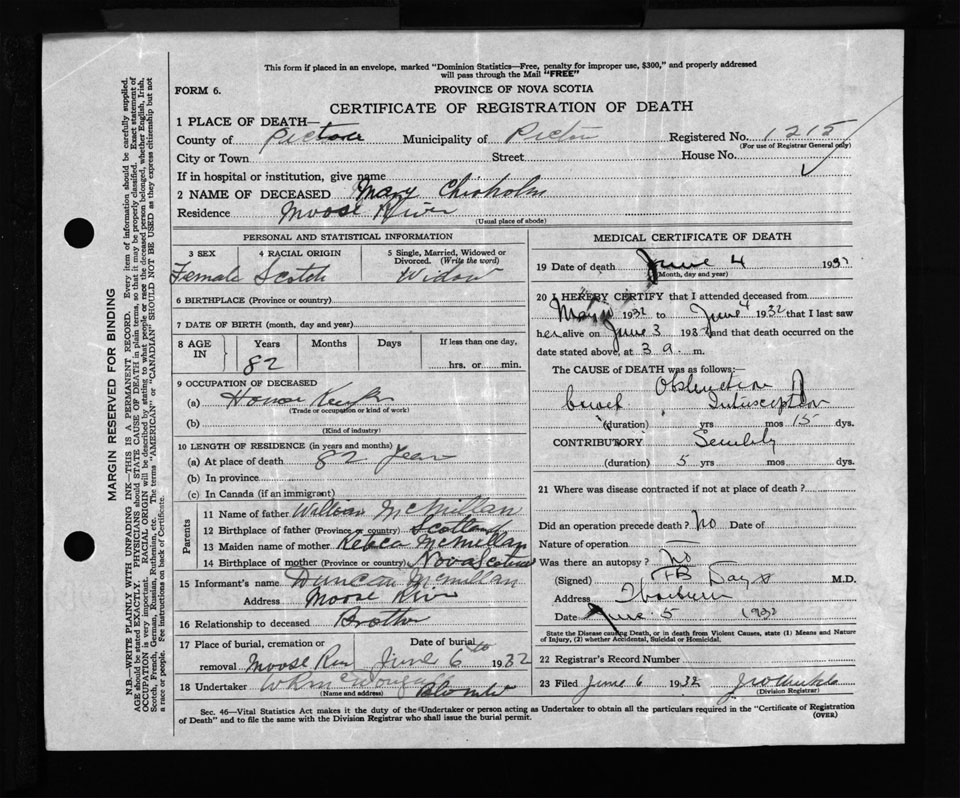 This form if placed in an envelope, marked "Dominion Statistics—Free, penalty for improper use, $300," and properly addressed
will pass through the Mail "FREE"
FORM 6.
PROVINCE OF NOVA SCOTIA
CERTIFICATE OF REGISTRATION OF DEATH
1 PLACE OF DEATH—
County of Pictou Municipality of Pictou Registered No. 1215
(For use of Registrar General only)
City or Town Street House No.
If in hospital or institution, give name
2 NAME OF DECEASED Mary Chisholm
Residence Moose River
(Usual place of abode)
PERSONAL AND STATISTICAL INFORMATION
3 SEX 4 RACIAL ORIGIN 5 Single, Married, Widowed or
Divorced. (Write the word)
Female Scotch Widow
6 BIRTHPLACE (Province or country)
7 DATE OF BIRTH (month, day and year)
8 AGE IN Years Months Days If less than one day,
82 hrs. or min.
9 OCCUPATION OF DECEASED
(a) House Keeper
(Trade or occupation or kind of work)
(b)
(Kind of industry)
10 LENGTH OF RESIDENCE (in years and months)
(a) At place of death 82 Years
(b) In province
(c) In Canada (if an immigrant)
Parents
11 Name of father William McMillan
12 Birthplace of father (Province or country) Scotland
13 Maiden name of mother McMillan
14 Birthplace of mother (Province or country) Nova Scotia
15 Informant's name Duncan McMillan
Address Moose River
16 Relationship to deceased Brother
17 Place of burial, cremation or Date of burial
removal Moose River June 6th 1932
18 Undertaker
(Name and address)
MEDICAL CERTIFICATE OF DEATH
19 Date of death June 4 193
(Month, day and year)
20 I HEREBY CERTIFY that I attended deceased from
May 1932 to June 4 1932 that I last saw
her alive on June 3 1932 and that death occurred on
date stated above, at 3 a. m.
The CAUSE of DEATH was as follows:
Obstruction
bowel
(duration) yrs mos 15 dys.
CONTRIBUTORY Senility
(duration) 5 yrs mos dys.
21 Where was disease contracted if not at place of death?
Did an operation precede death? No Date of
Nature of operation
Was there an autopsy? No
(Signed) M.D.
Address
Date June 5 1932
State the Disease causing Death, or in death from Violent Causes, state (1) Means and Nature
of Injury, (2) whether Accidental, Suicidal or Homicidal.
22 Registrar's Record Number
23 Filed June 6 1932
(Division Registrar)
Sec. 46—Vital Statistics Act makes it the duty of the Undertaker or person acting as Undertaker to obtain all the particulars required in the "Certificate of Registration
of Death" and to file the same with the Division Registrar who shall issue the burial permit.
(OVER)
MARGIN RESERVED FOR BINDING
N.B.—WRITE PLAINLY WITH UNFADING INK—THIS IS A PERMANENT RECORD. Every item of information should be carefully supplied.
AGE should be stated EXACTLY. PHYSICIANS should STATE CAUSE OF DEATH in plain terms, so that it may be properly classified. Exact statement of
OCCUPATION is very important. RACIAL ORIGIN will be described by stating to what people or race the deceased person belonged, whether English, Irish,
Scotch, French, German, Russian, Ruthenian, etc. The terms "AMERICAN" or "CANADIAN" SHOULD NOT BE USED as they express citizenship but not
a race or people. See instructions on back of Certificate.